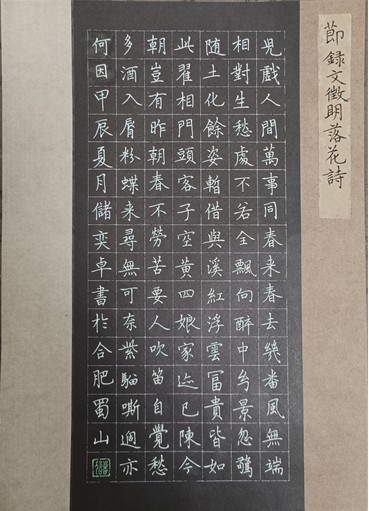 節録文徵明落花詩
児戲人間萬事同春来春去幾番風無端
相對生愁處不若全飄向醉中景忽驚
随土化餘姿暫借與溪紅浮雲冨貴皆如
此翟相門頭客子空黄四娘家迹已陳今
朝豈有昨朝春不勞苦要人吹笛自覺愁
多酒入脣粉蝶来尋無可奈紫騮嘶過亦
何因甲辰夏月儲奕卓書於合肥蜀山